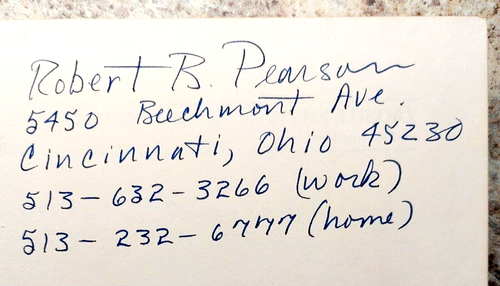 Robert B. Pearson
5450 Beechmont Ave.
Cincinnati, Ohio 45230
513-632-3266 (work)
513-232-6777 (home)